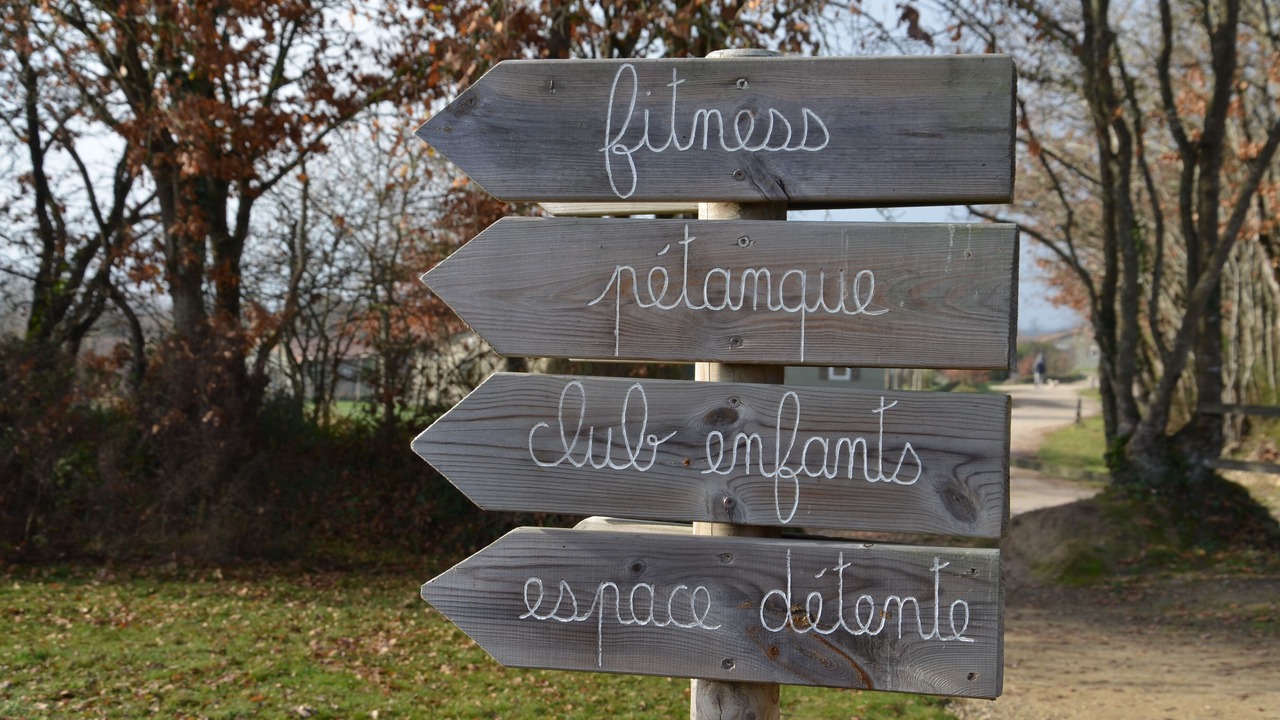 fitness
pétanque
club enfants
espace détente